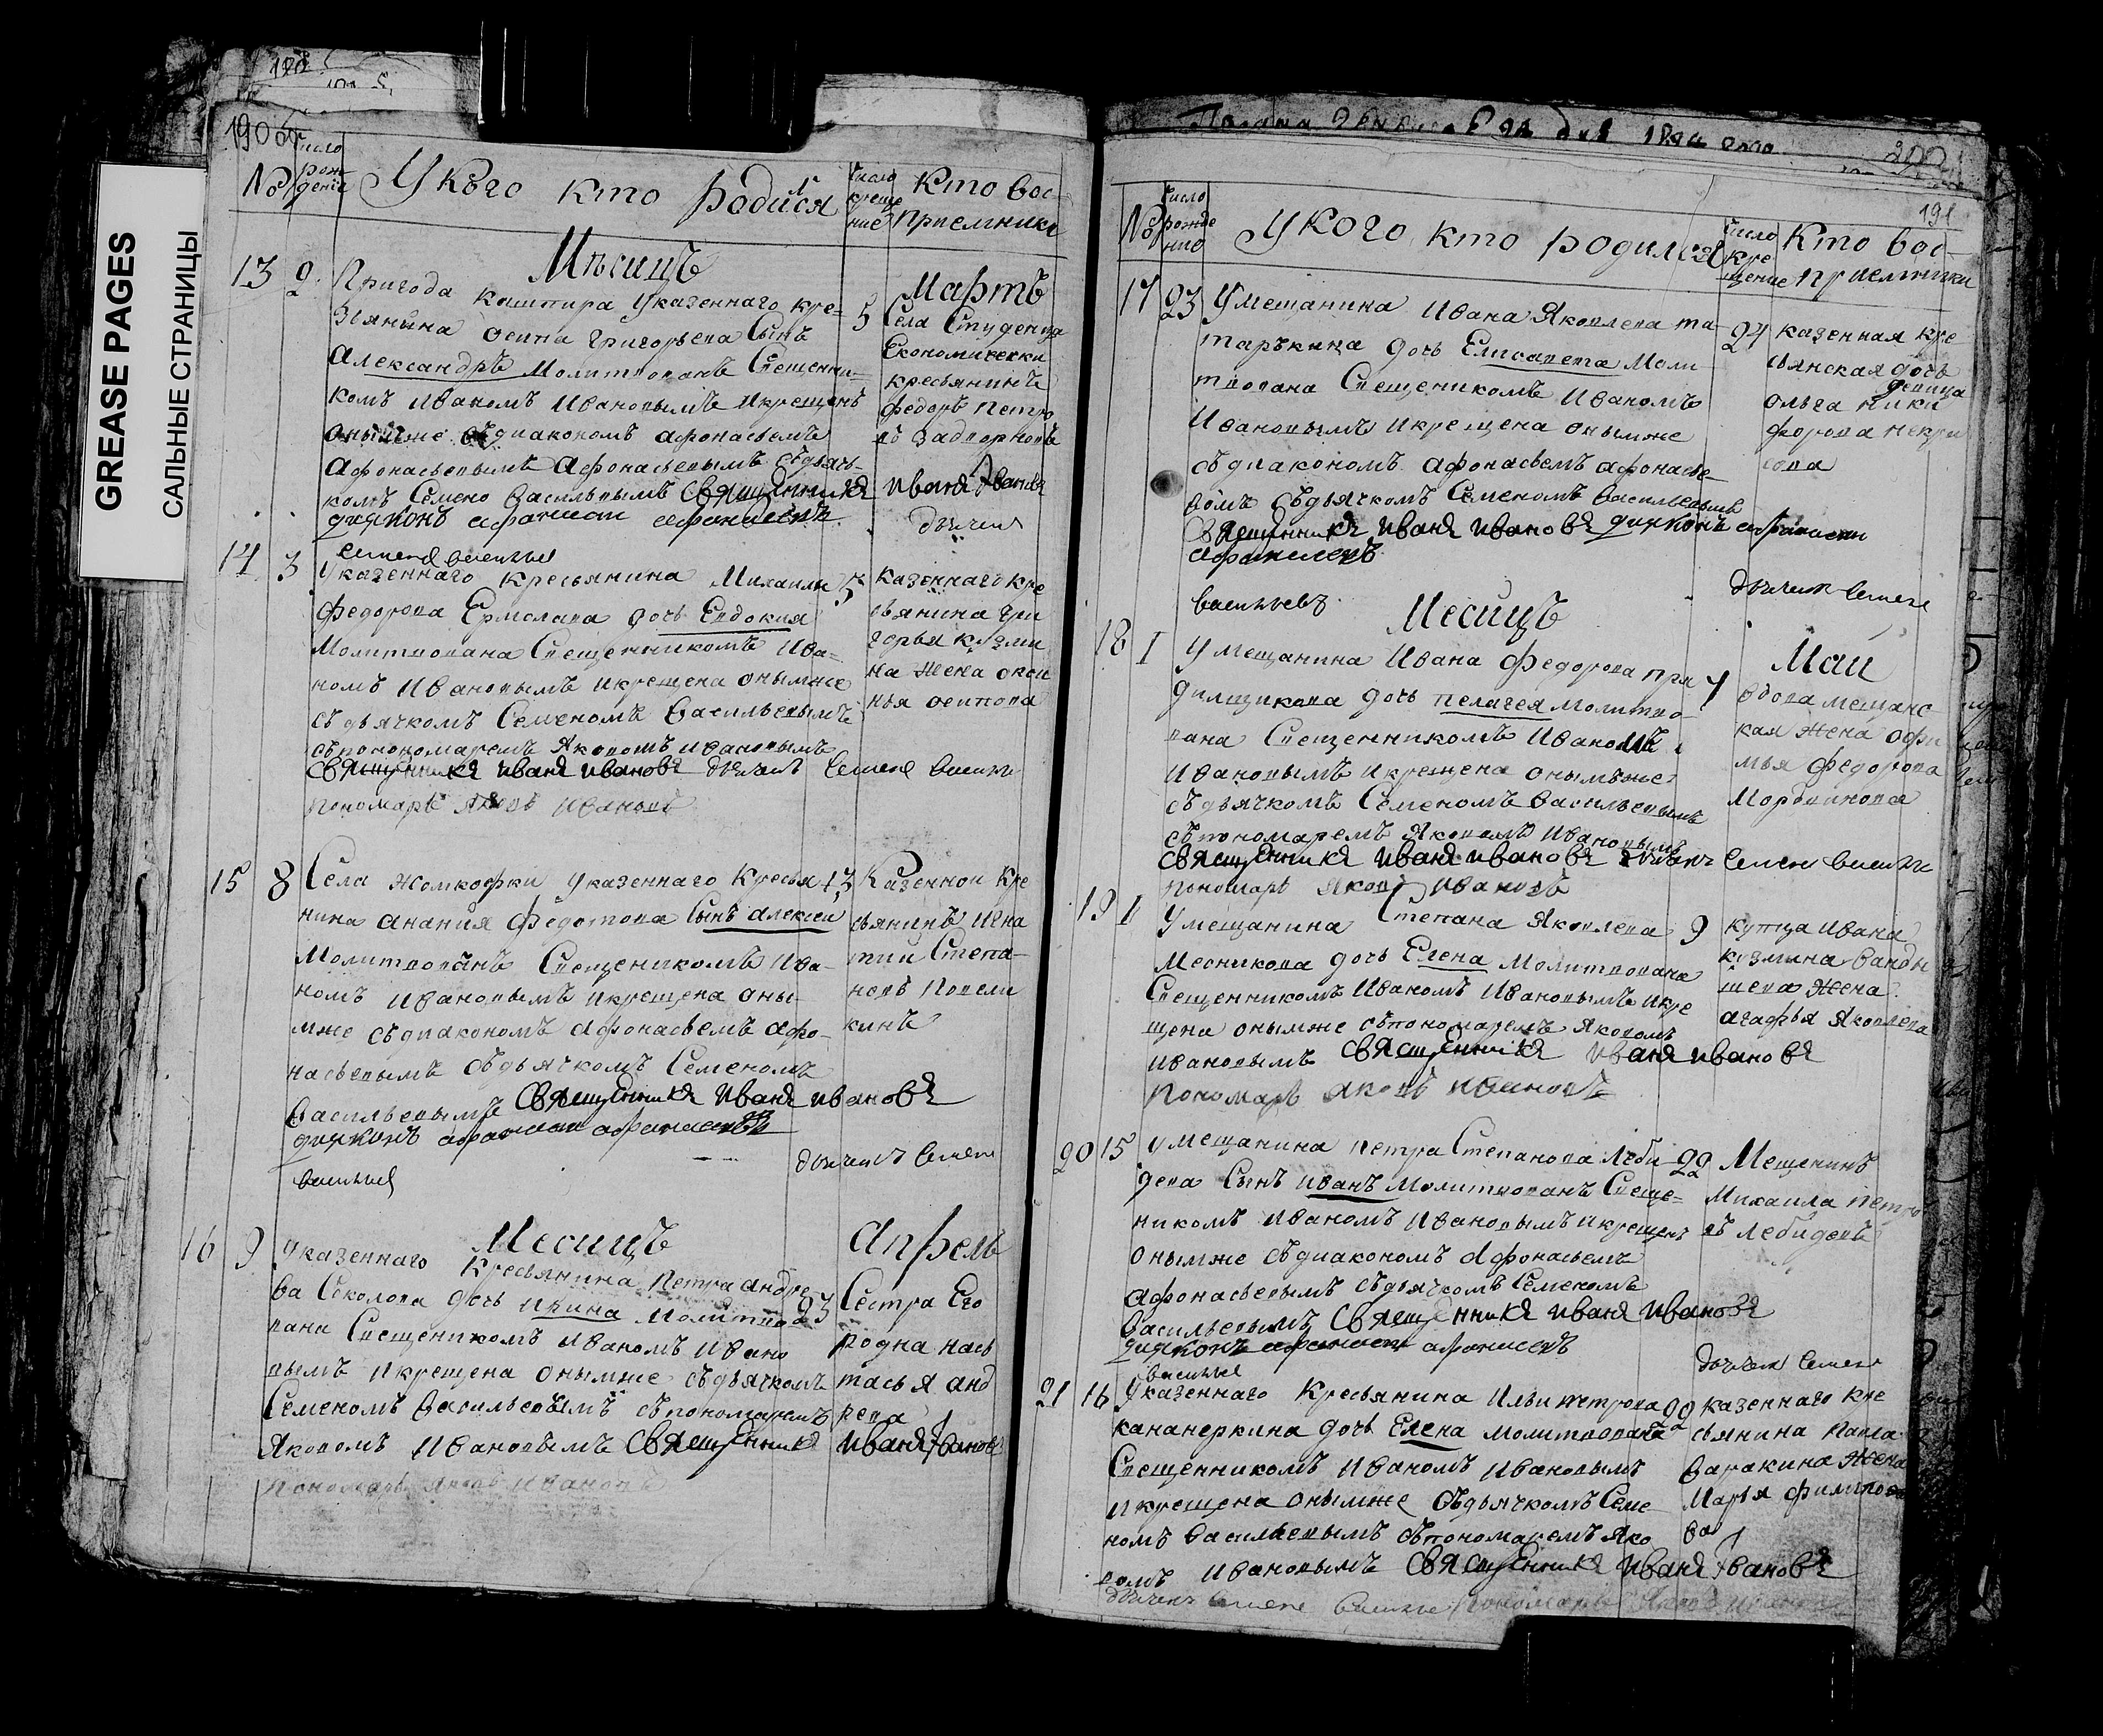 GREASE PAGES
САЛЬНЫЕ СТРАНИЦЫ
190
№
число рождение
У кого кто родился
число крещение
Кто восприемники
Мѣсицъ
Мартъ
13
2
Пригода Кашпира Указеннаго кре-
зьянина осипа Григорьева Сынъ
Александръ Молитвованъ Свещенни-
комъ Иваномъ Ивановымъ Икрещенъ
онымже съдиакономъ афонасьемъ
Афонасьевымъ съдьяч-
комъ Семено Васильвымъ Священникъ Иванъ Ивановъ
5
Села Студенца
Економически
кресьянинъ
Федоръ Петро
въ Задворновъ
14
3
Указеннаго кресьянина Михаилы
Федорова Ермолава дочь Евдокия
Молитвована Свещенникомъ Ива-
номъ Ивановымъ икрещена онымже
съдьячкомъ Семеномъ Васильевымъ
съпонономаремъ Яковомъ ивановымъ
Священникъ Иванъ Ивановъ дьячекъ Семенъ
пономарь Яковъ Ивановъ
5
казеннаго кре
сьянина Гри
горья кузми
на жена окси
нья осипова
15
8
Села Указеннаго Кресья
нина анания Федотова Сынъ алексей
Молитвованъ Свещеникомъ Ива-
номъ Ивановымъ икрещена оны-
мже съдиакономъ Афонасьемъ афо-
насьевымъ съдьячкомъ Семеномъ
Васильевымъ Священникъ Иванъ Ивановъ
13
Казенной Кре
сьянинъ Игна
тии Степа-
новъ
дьячекъ Семенъ
Месицъ
Апрель
16
9
Указеннаго Кресьянина Петра андре
ва Соколова дочь Ирина Молитво
вана Свещеникомъ Иваномъ Ивано
вымъ икрещена онымже съдьячкомъ
Семеномъ Васильевымъ съпономаремъ
Яковомъ Ивановымъ Священникъ Иванъ Ивановъ
пономарь Яковъ Ивановъ
23
Сестра Его
родна насъ
тасья анд
рева
191
№
число рожде нио
У кого кто родился
число кре щение
Кто вос-
приемники
17
23
Умещанина Ивана Яковлева та-
таркина дочь Елисавета Моли-
твована Свещеникомъ Иваномъ
Ивановымъ икрещена онымже
съдиакономъ афонасьемъ афонасье-
вомъ съдьячкомъ Семеномъ Васильевымъ
Священникъ Иванъ Ивановъ диаконъ
24
казенная кре
сьянская дочь
девица
ольга ники
форова некра
сова
Васильевъ
дьячекъ Семенъ
Месицъ
Маи
18
1
Умещанина Ивана Федорова пря
дилщикова дочь пелагея молитво-
вана Свещенникомъ Иваномъ
Ивановымъ икрещена онымъже
съдьячкомъ Семеномъ Васильевымъ
съпономаремъ Яковомъ Ивановымъ
Священникъ Иванъ Ивановъ дьячекъ Семенъ
пономарь Яковъ Ивановъ
вдова мещанс
кая жена офи
мья Федорова
19
1
Умещанина Степана Яковлева
Месникова дочь Елена Молитвована
Свещенникомъ Иваномъ Ивановымъ икре
щена онымже съпономаремъ Яковомъ
ивановымъ Священникъ Иванъ Ивановъ
пономарь Яковъ Ивановъ
9
купца ивана
кузмина
жена
агафья Яковлева
20
15
Умещанина петра Степанова Леби
дева Сынъ иванъ Молитвованъ Свеще-
никомъ Иваномъ Ивановымъ икрещенъ
онымже съдиакономъ Афонасьемъ
Афонасьевымъ съдьячкомъ Семеномъ
Васильевымъ Священникъ Иванъ Ивановъ
22
Мещенинъ
Михаила петро
въ лебидевъ
дьячекъ Семенъ
21
16
Указеннаго Кресьянина Ильи петрова
дочь Елена молитвована
Свещенникомъ Иваномъ Ивановымъ
икрещена онымже съдьячкомъ Семе-
номъ Васильевымъ съпономаремъ Яко
вомъ Ивановымъ Священникъ Иванъ Ивановъ
22
казеннаго кре
сьянина павла
Варакина жена
Марья филипо
ва